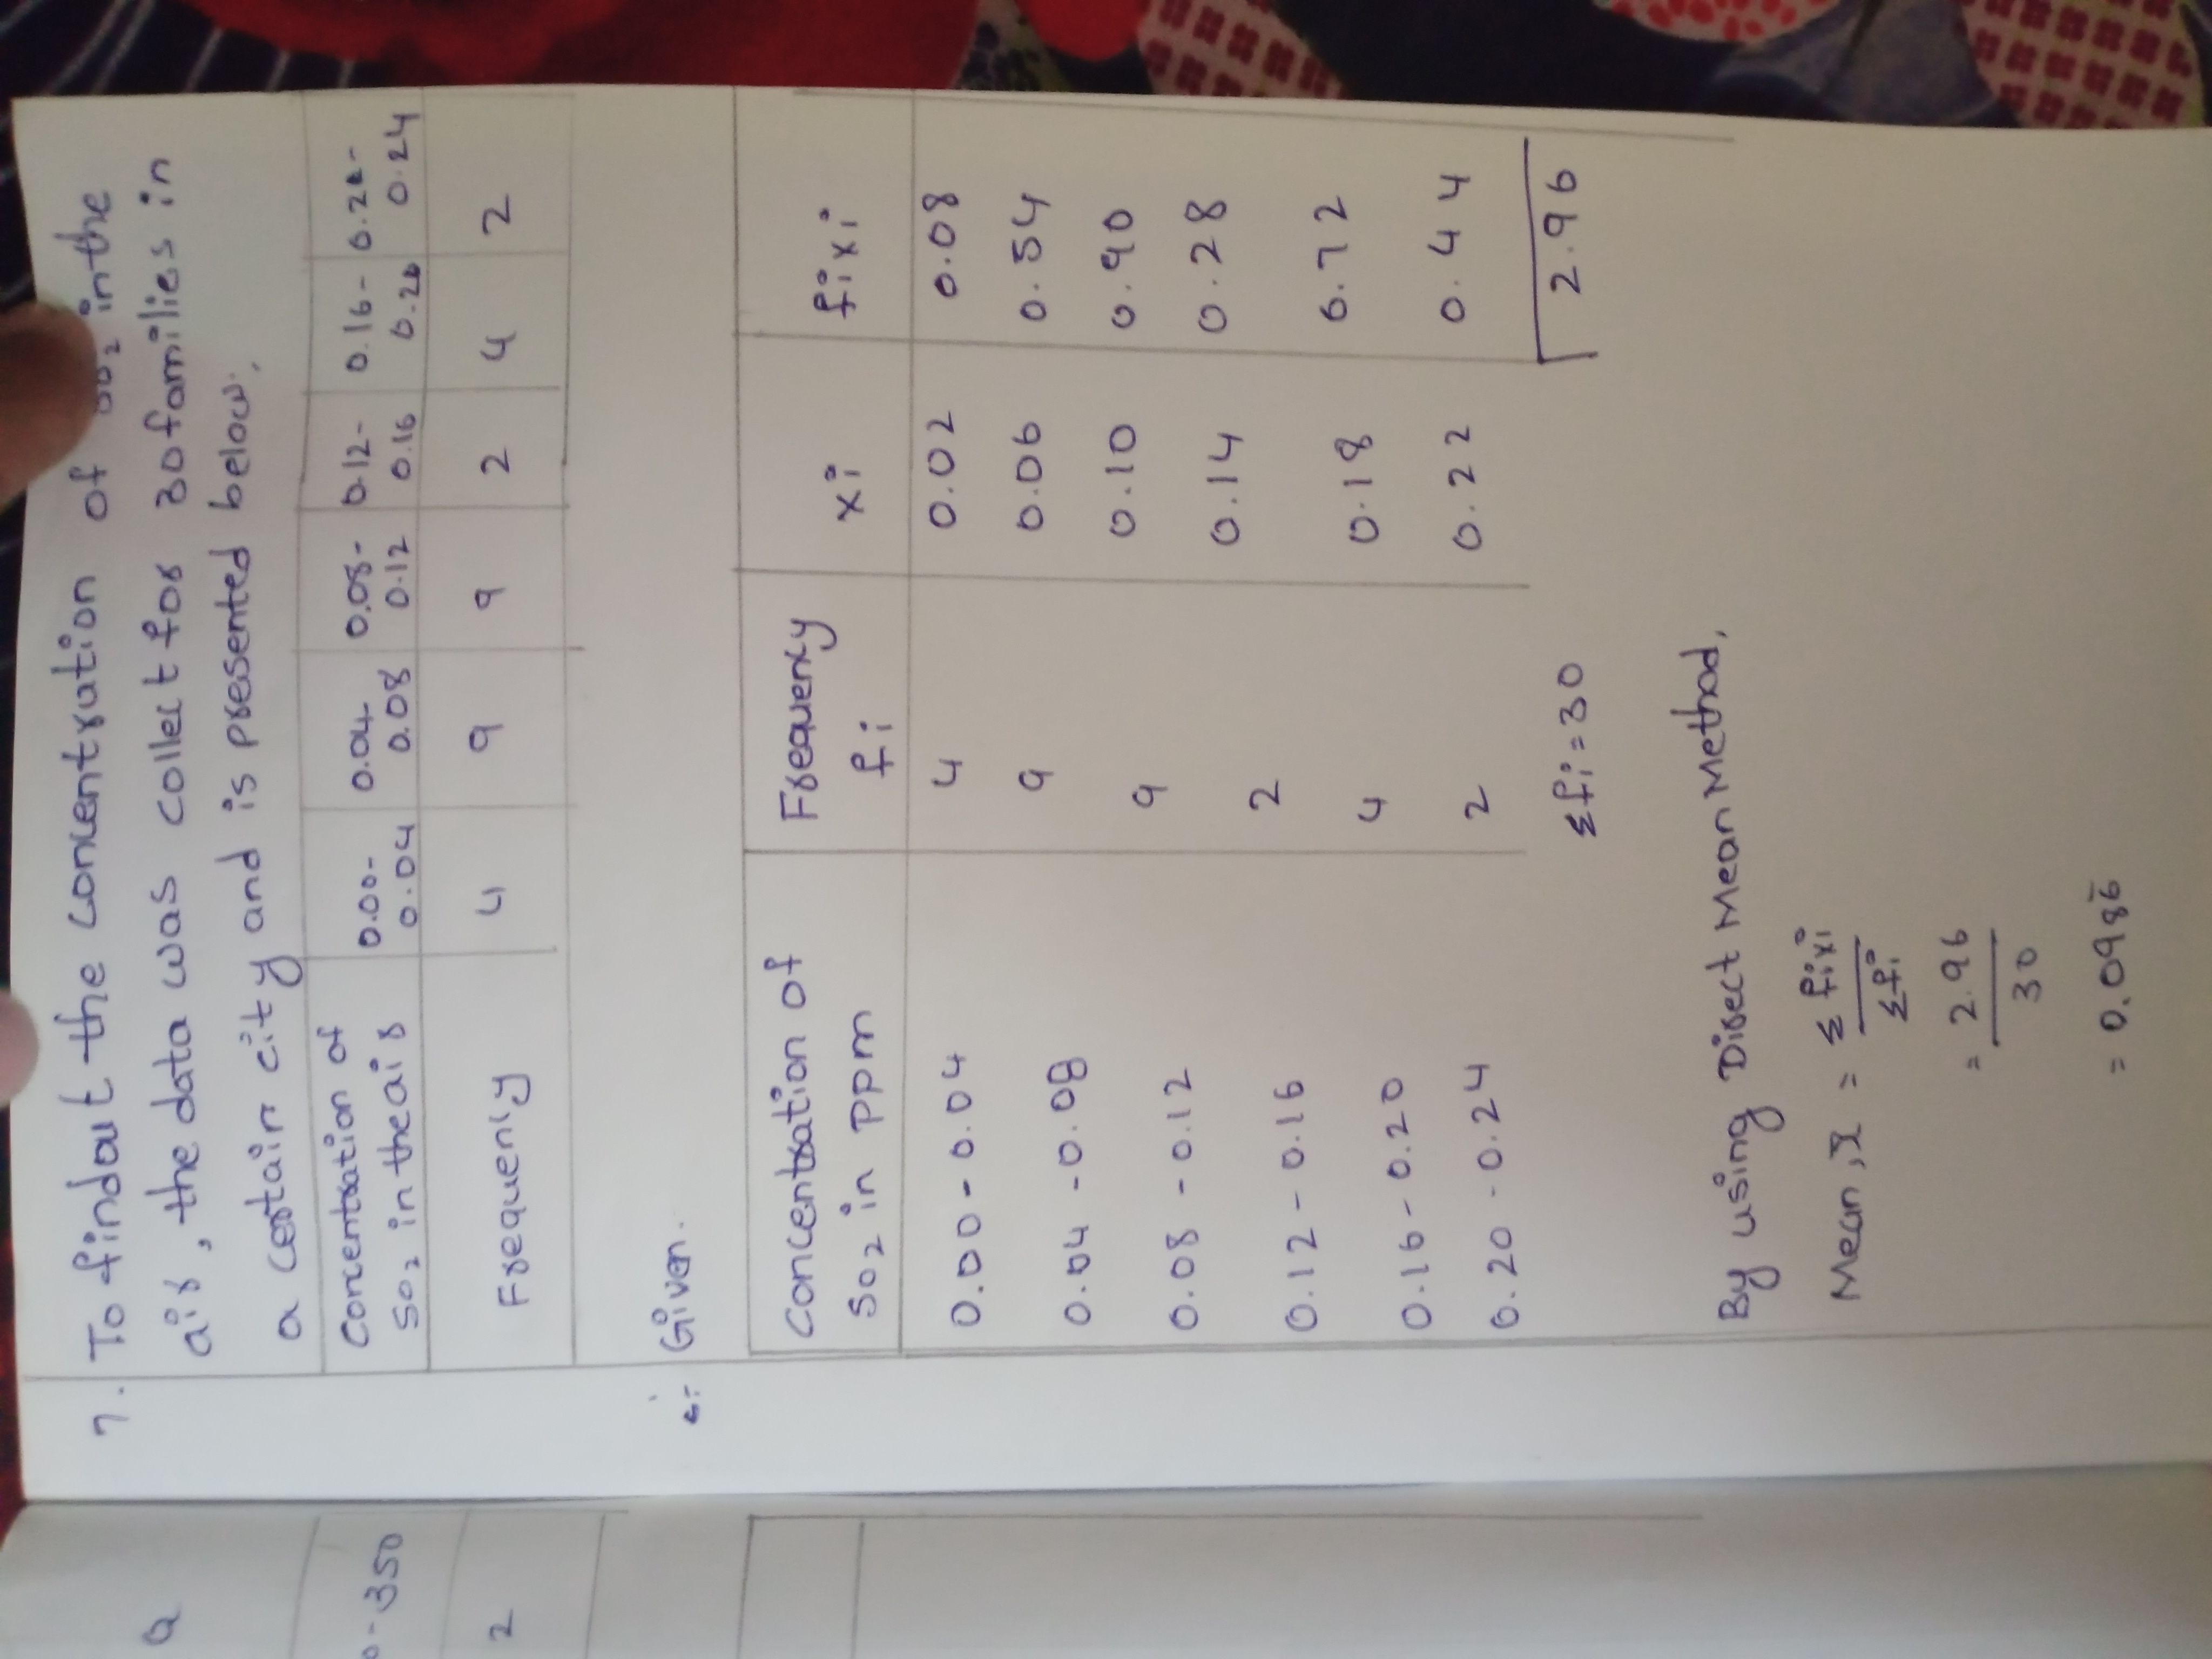 7. To findout the concentration of in the
air, the data was collect for 30 families in
a certain city and is presented below.
Concentration of SO₂ in the air 0.00-0.04 0.04-0.08 0.08-0.12 0.12-0.16 0.16-0.20 0.20-0.24
Frequency 4 9 9 2 4 2
Given.
Concentration of SO₂ in PPm Frequency fi xi fixi
0.00-0.04 4 0.02 0.08
0.04-0.08 9 0.06 0.54
0.08-0.12 9 0.10 0.90
0.12-0.16 2 0.14 0.28
0.16-0.20 4 0.18 0.72
0.20-0.24 2 0.22 0.44
Σfi=30 2.96
By using Direct Mean Method,
Mean, x̄ = Σfixi/Σfi
= 2.96/30
= 0.0986
a
0-350
2